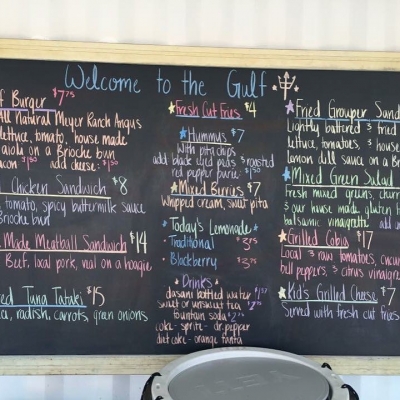 Welcome to the Gulf
Burger $7.75
All Natural Meyer Ranch Angus
lettuce, tomato, house made
aiola on a Brioche bun
add cheese: $1.50
Chicken Sandwich $8
tomato, spicy buttermilk sauce
Brioche bun
Made Meatball Sandwich $14
Beef, local pork, veal on a hoagie
Tuna Tataki $15
radish, carrots, green onions
Fresh Cut Fries $4
Hummus $7
with pita chips
add: black eyed peas & roasted
red pepper purée $1.50
Mixed Berries $7
whipped cream, sweet pita
Today's Lemonade
Traditional $3.75
Blackberry $3.75
Drinks
dasani bottled water
sweet or unsweet tea
fountain soda
coke - sprite - dr. pepper
diet coke - orange fanta
Fried Grouper Sand
Lightly battered & fried
lettuce, tomatoes, & house
lemon dill sauce on a Br
Mixed Green Salad
Fresh mixed greens, cherr
& our house made gluten f
balsamic vinegrette
Grilled Cobia $17
Local & raw tomatoes, cucum
bell peppers, & citrus vinaigre
Kid's Grilled Cheese $7
Served with fresh cut fries